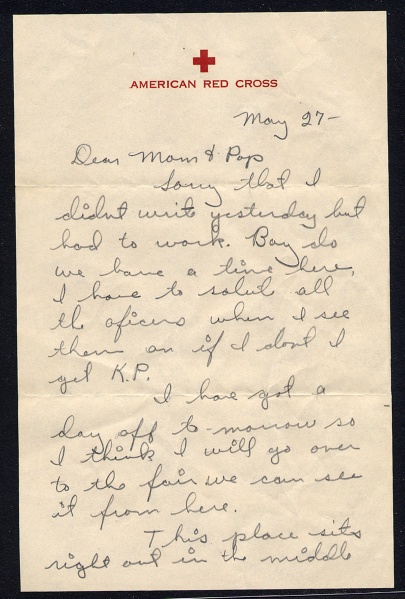 AMERICAN RED CROSS
May 27-
Dear Mom & Pop
Sorry that I
didnt write yesterday but
had to work. Boy do
we have a time here,
I have to salut all
the oficers when I see
them an if I dont I
get K.P.
I have got a
day off to-morrow so
I think I will go over
to the fair we can see
it from here.
This place sits
right out in the middle